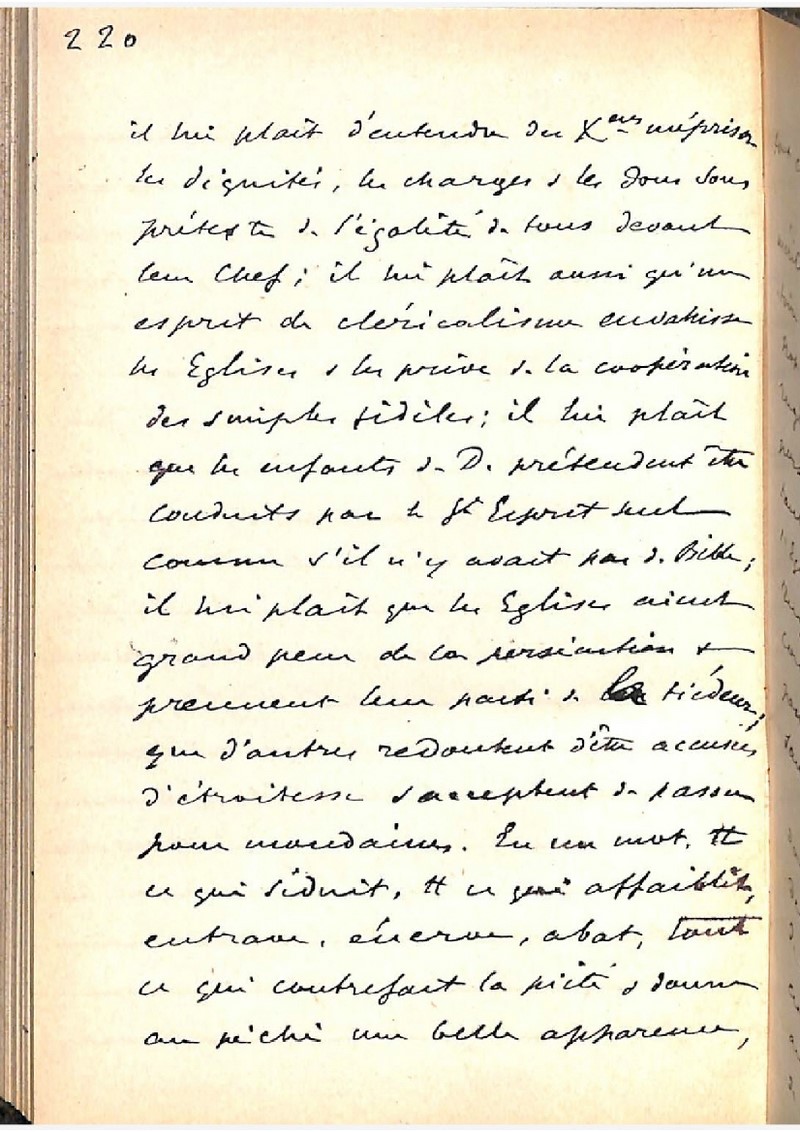 220
il lui plaît d'entendre des Xens mépriser
les dignités, les charges & les dons sous
prétexte de l'égalité de tous devant
leur Chef; il lui plaît aussi qu'un
esprit de cléricalisme envahisse
les Eglises & les prive de la coopération
des simples fidèles; il lui plaît
que les enfants de D. prétendent être
conduits par le St Esprit seul
comme s'il n'y avait pas de Bible;
il lui plaît que les Eglises aient
grand peur de la persécution &
prennent leur parti de la tiédeur;
que d'autres redoutent d'être accusés
d'étroitesse & acceptent de passer
pour mondaines. En un mot, tt
ce qui séduit, tt ce qui affaiblit,
entrave, énerve, abat, tout
ce qui contrefait la piété & donne
au péché une belle apparence,